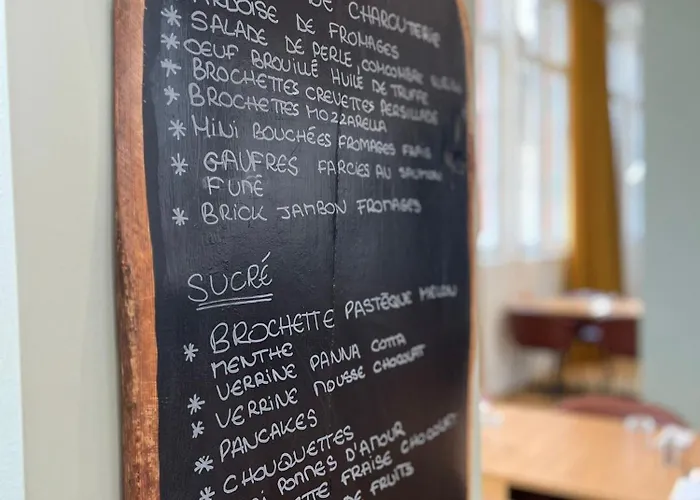 DE CHARCUTERIE
ARDOISE DE FROMAGES
* SALADE DE PERLE, CONCOMBRE
* OEUF BROUILLÉ HUILE DE TRUFFE
* BROCHETTES CREVETTES PERSILLADE
* BROCHETTES MOZZARELLA
* MINI BOUCHÉES FROMAGES FRAIS
* GAUFRES FARCIES AU SAUMON
FUMÉ
* BRICK JAMBON FROMAGES
SUCRÉ
* BROCHETTE PASTÈQUE MELON
MENTHE
* VERRINE PANNA COTTA
* VERRINE MOUSSE CHOCOLAT
* PANCAKES
* CHOUQUETTES
POMMES D'AMOUR
FRAISE CHOCOLAT
DE FRUITS